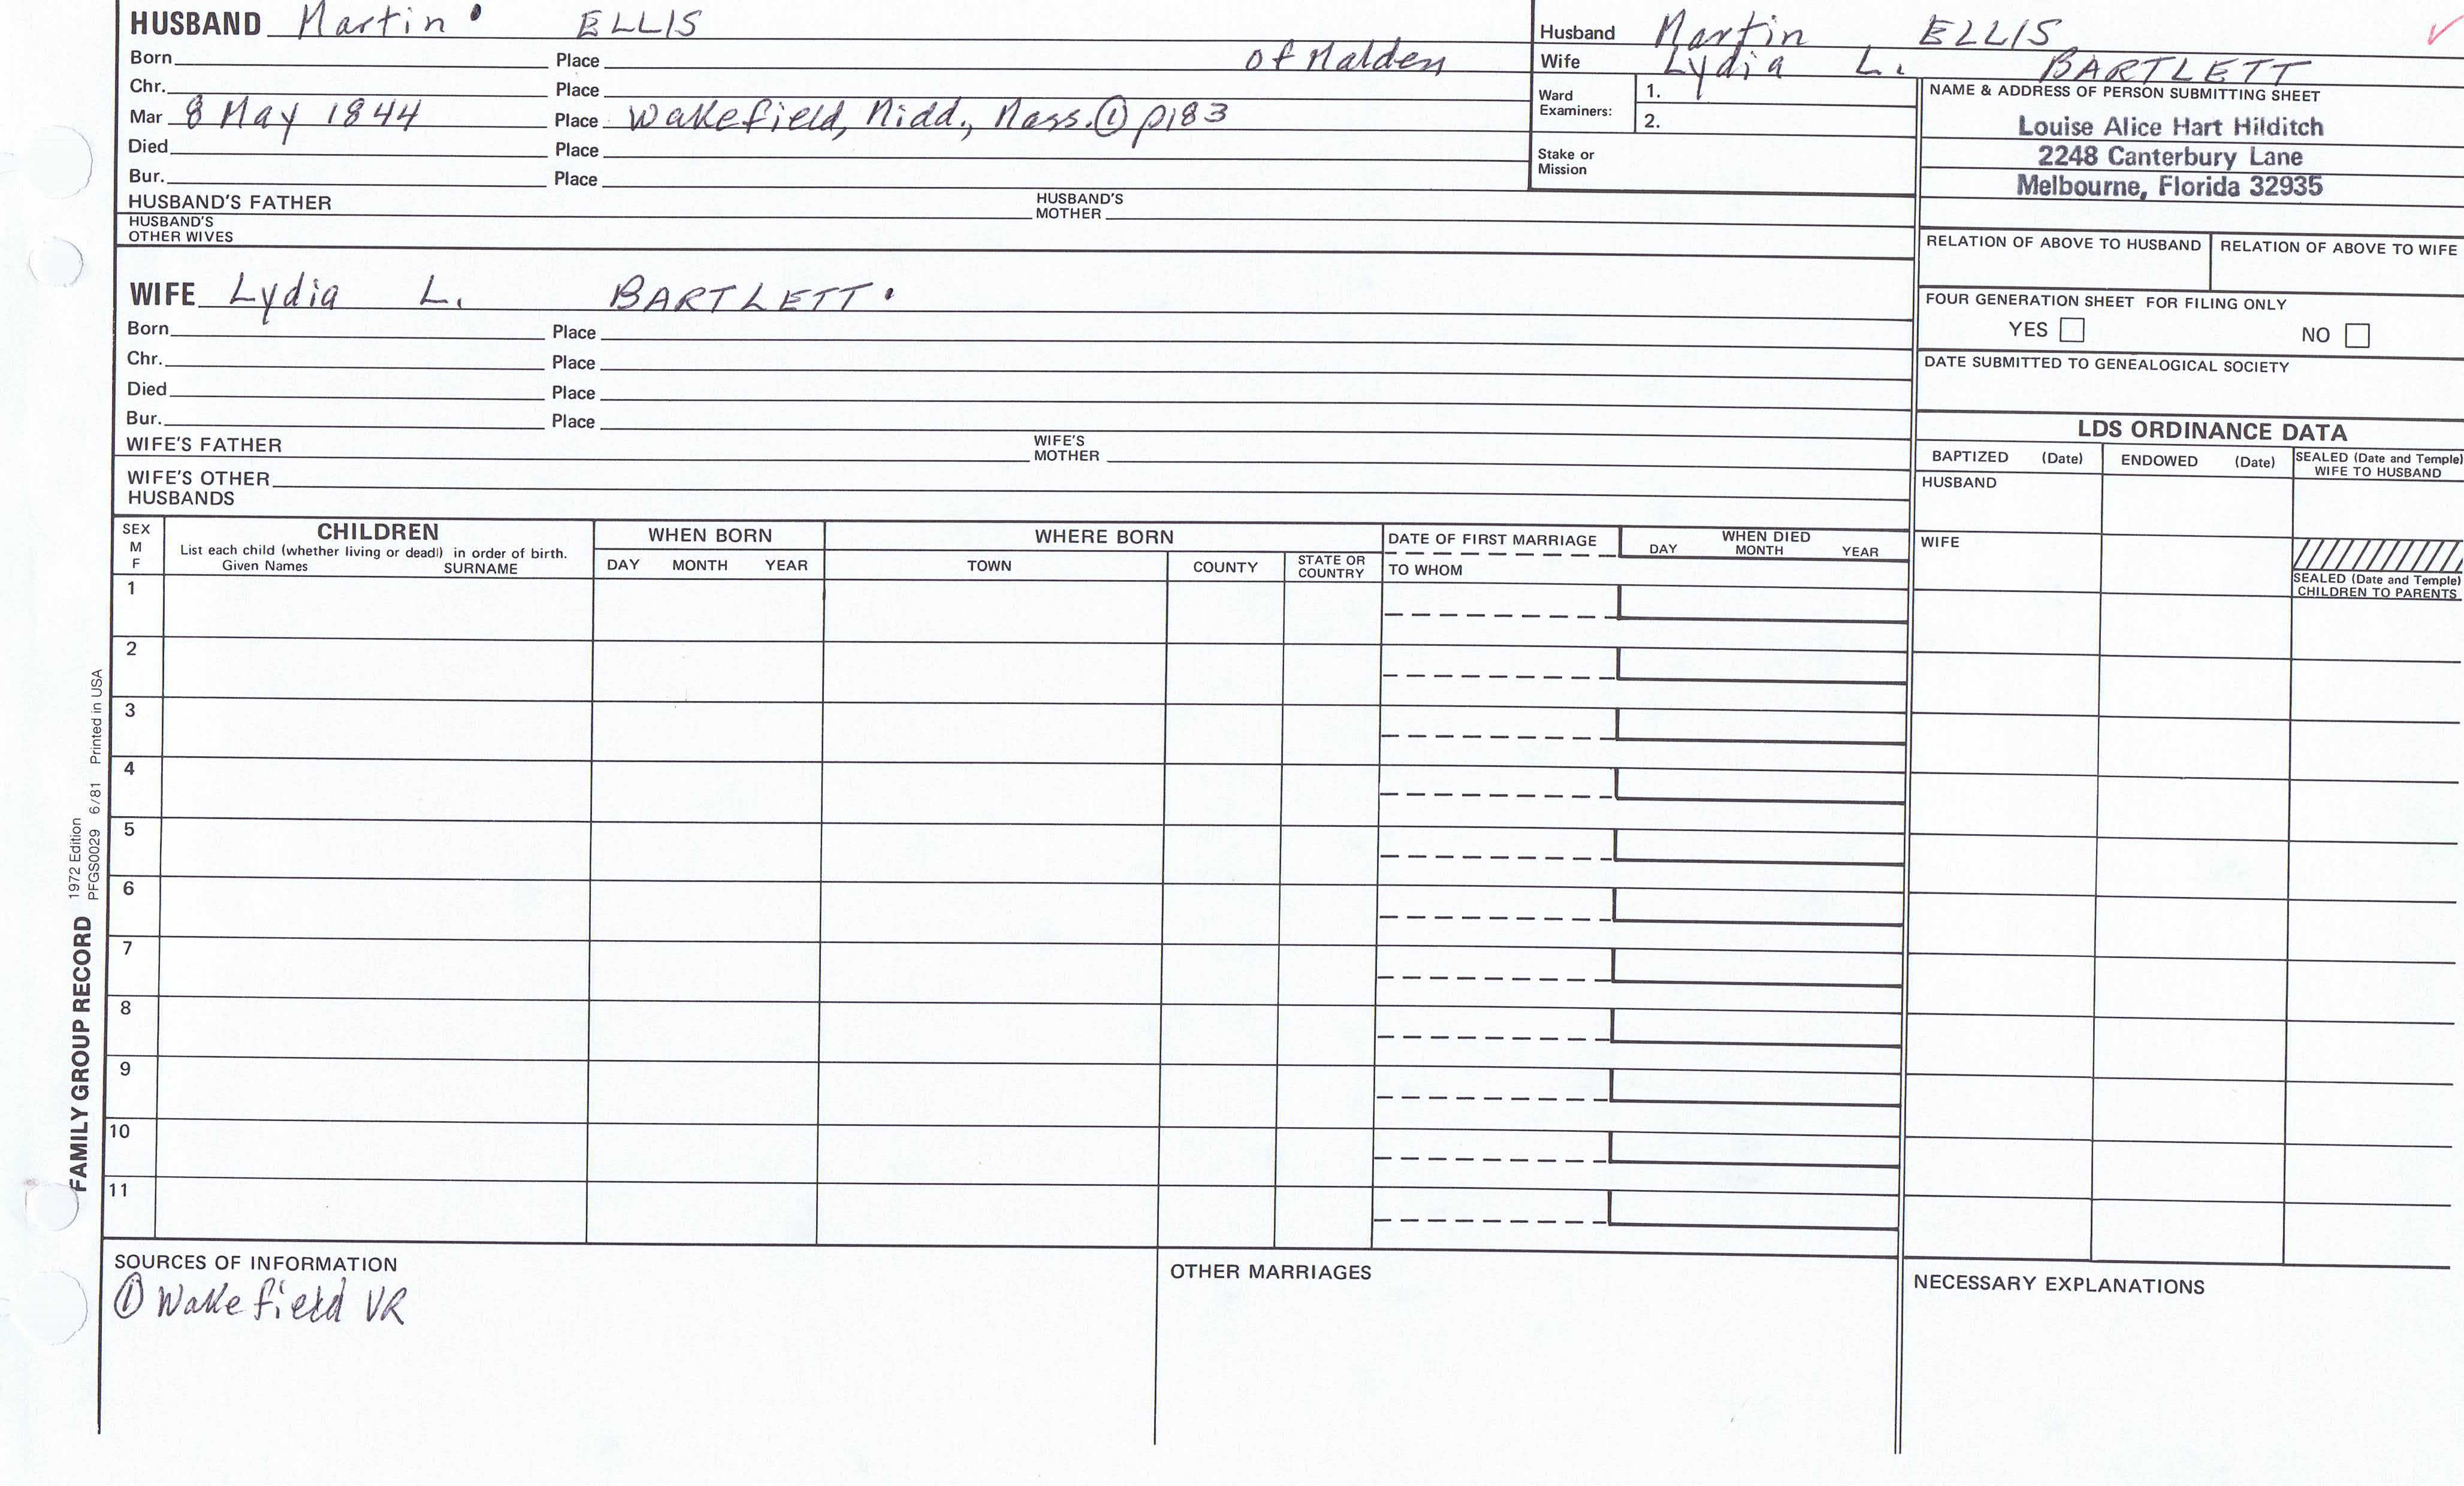 HUSBAND Martin ELLIS
Born Place of Malden
Chr. Place
Mar 8 May 1844 Place Wakefield, Midd., Mass. ① p183
Died Place
Bur. Place
HUSBAND'S FATHER HUSBAND'S MOTHER
HUSBAND'S OTHER WIVES
Husband Martin ELLIS ✓
Wife Lydia L. BARTLETT
Ward Examiners: 1.
2.
Stake or Mission
NAME & ADDRESS OF PERSON SUBMITTING SHEET
Louise Alice Hart Hilditch
2248 Canterbury Lane
Melbourne, Florida 32935
RELATION OF ABOVE TO HUSBAND RELATION OF ABOVE TO WIFE
FOUR GENERATION SHEET FOR FILING ONLY
YES NO
DATE SUBMITTED TO GENEALOGICAL SOCIETY
WIFE Lydia L. BARTLETT
Born Place
Chr. Place
Died Place
Bur. Place
WIFE'S FATHER WIFE'S MOTHER
WIFE'S OTHER HUSBANDS
LDS ORDINANCE DATA
BAPTIZED (Date) ENDOWED (Date) SEALED (Date and Temple) WIFE TO HUSBAND
HUSBAND
WIFE
SEALED (Date and Temple) CHILDREN TO PARENTS
SEX M F
CHILDREN
List each child (whether living or dead) in order of birth.
Given Names SURNAME
WHEN BORN
DAY MONTH YEAR
WHERE BORN
TOWN COUNTY STATE OR COUNTRY
DATE OF FIRST MARRIAGE
TO WHOM
WHEN DIED
DAY MONTH YEAR
1
2
3
4
5
6
7
8
9
10
11
FAMILY GROUP RECORD
1972 Edition
PFGS0029 6/81 Printed in USA
SOURCES OF INFORMATION
① Wakefield VR
OTHER MARRIAGES
NECESSARY EXPLANATIONS